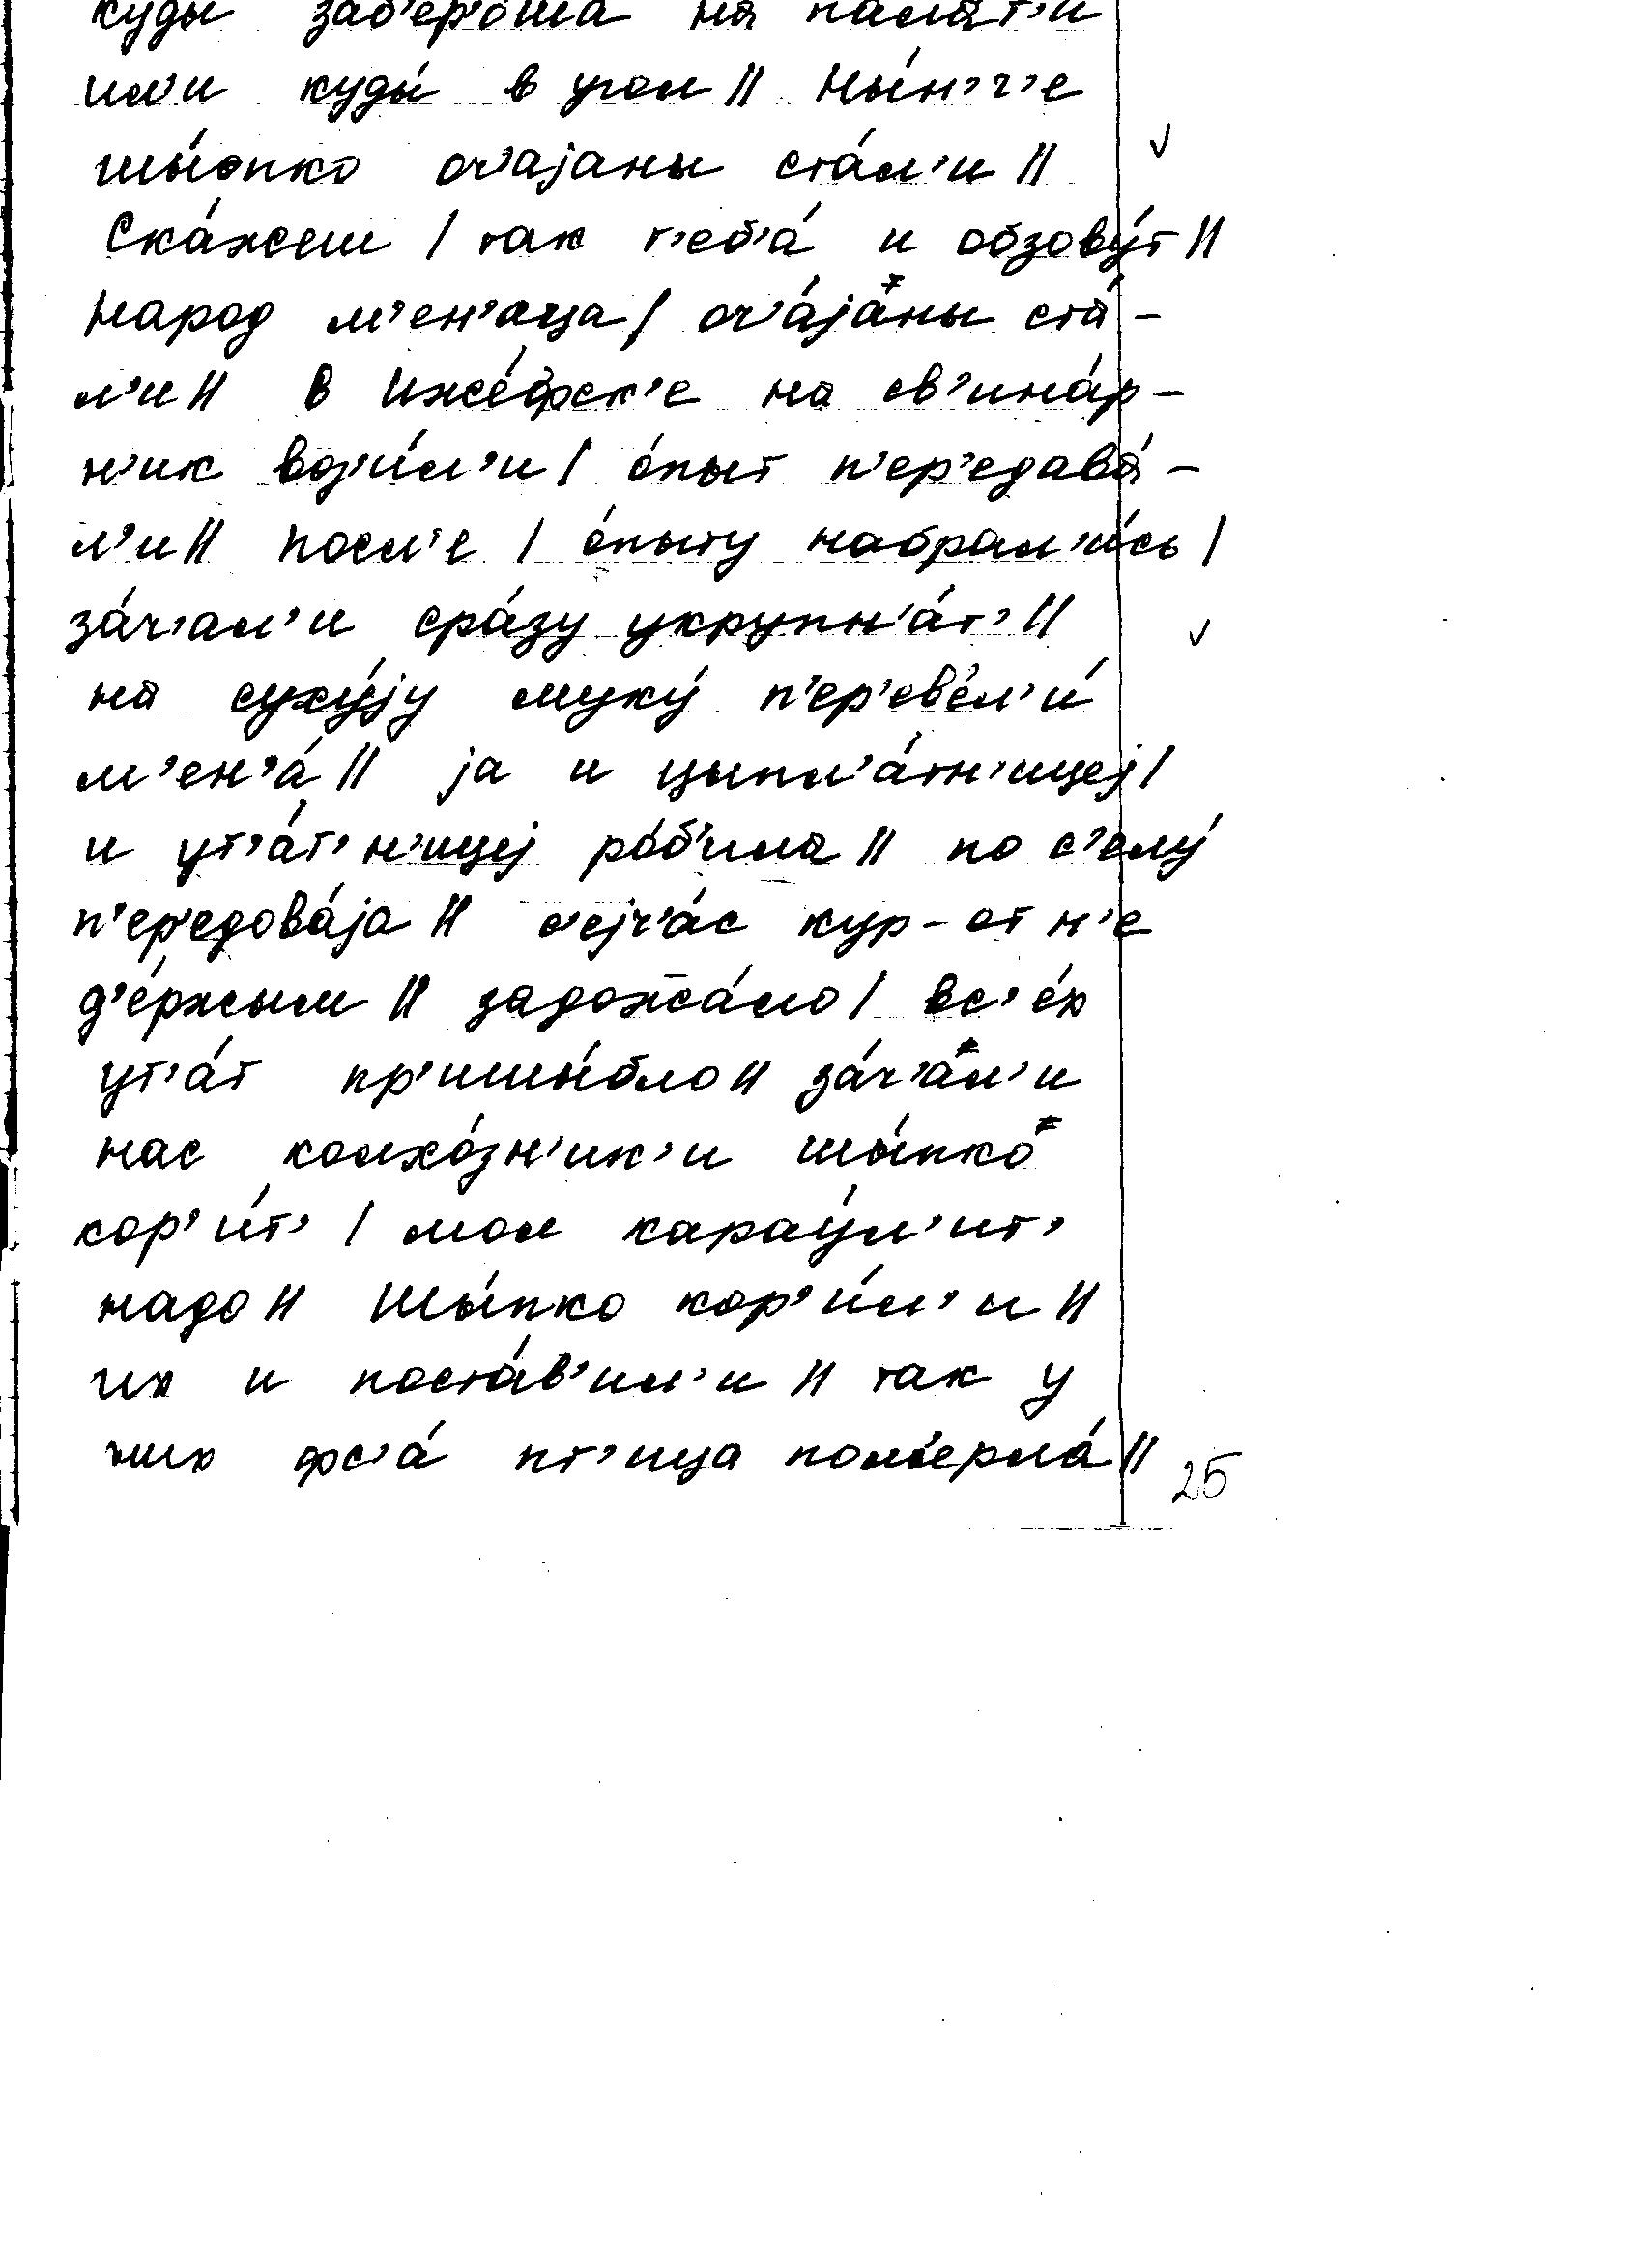 куды заб'ер'оша на памят'и
ил'и куды́ в угол || Ны́н'ч'е
шы́бпко оч'аjаны ста́л'и ||
Ска́жеш | так т'еб'а́ и обзову́т ||
Народ м'ен'аца | оч'а́jаны ста-
л'и || В Иже́фск'е на св'ина́р-
н'ик воз'и́л'и | о́пыт п'ер'едава́-
л'и || посл'е | о́пыту набрал'и́сь |
за́ч'ал'и сра́зу укрупн'а́т' ||
на суху́jу муку́ п'ер'евел'и́
м'ен'а́ || jа и цыпл'а́тн'ицеj |
и ут'а́т'н'ицеj ро́б'ила || по с'елу́
п'ер'едова́jа || с'еjч'а́с кур-от н'е
д'е́ржым || задожа́ло | вс'е́х
ут'а́т пр'ишы́бло || за́ч'ал'и
нас колхо́зн'ик'и шы́пко
кор'и́т' | мол карау́л'ит'
надо || Шы́пко кор'и́л'и ||
их и поста́в'ил'и || так у
них фс'а́ пт'ица пом'ерла́ ||
25